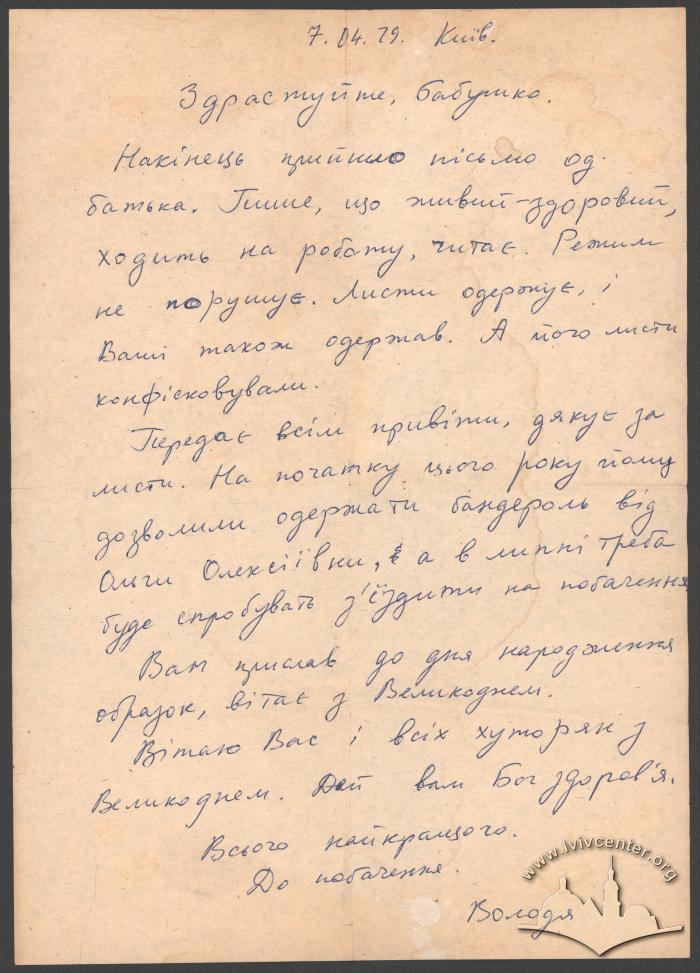 7.04.79. Київ.
Здрастуйте, бабушко.
Накінець прийшло пісьмо од
батька. Пише, що живий-здоровий,
ходить на роботу, читає. Режим
не порушує. Листи одержує, і
Ваші також одержав. А його листи
конфісковували.
Передає всім привіти, дякує за
листи. На початку цього року йому
дозволили одержати бандероль від
Ольги Олексіївни, а в липні треба
буде спробувать з'їздити на побачення
Вам прислав до дня народження
образок, вітає з Великоднем.
Вітаю Вас і всіх хуторян з
Великоднем. Дай вам Бог здоров'я.
Всього найкращого.
До побачення.
Володя
www.lvivcenter.org